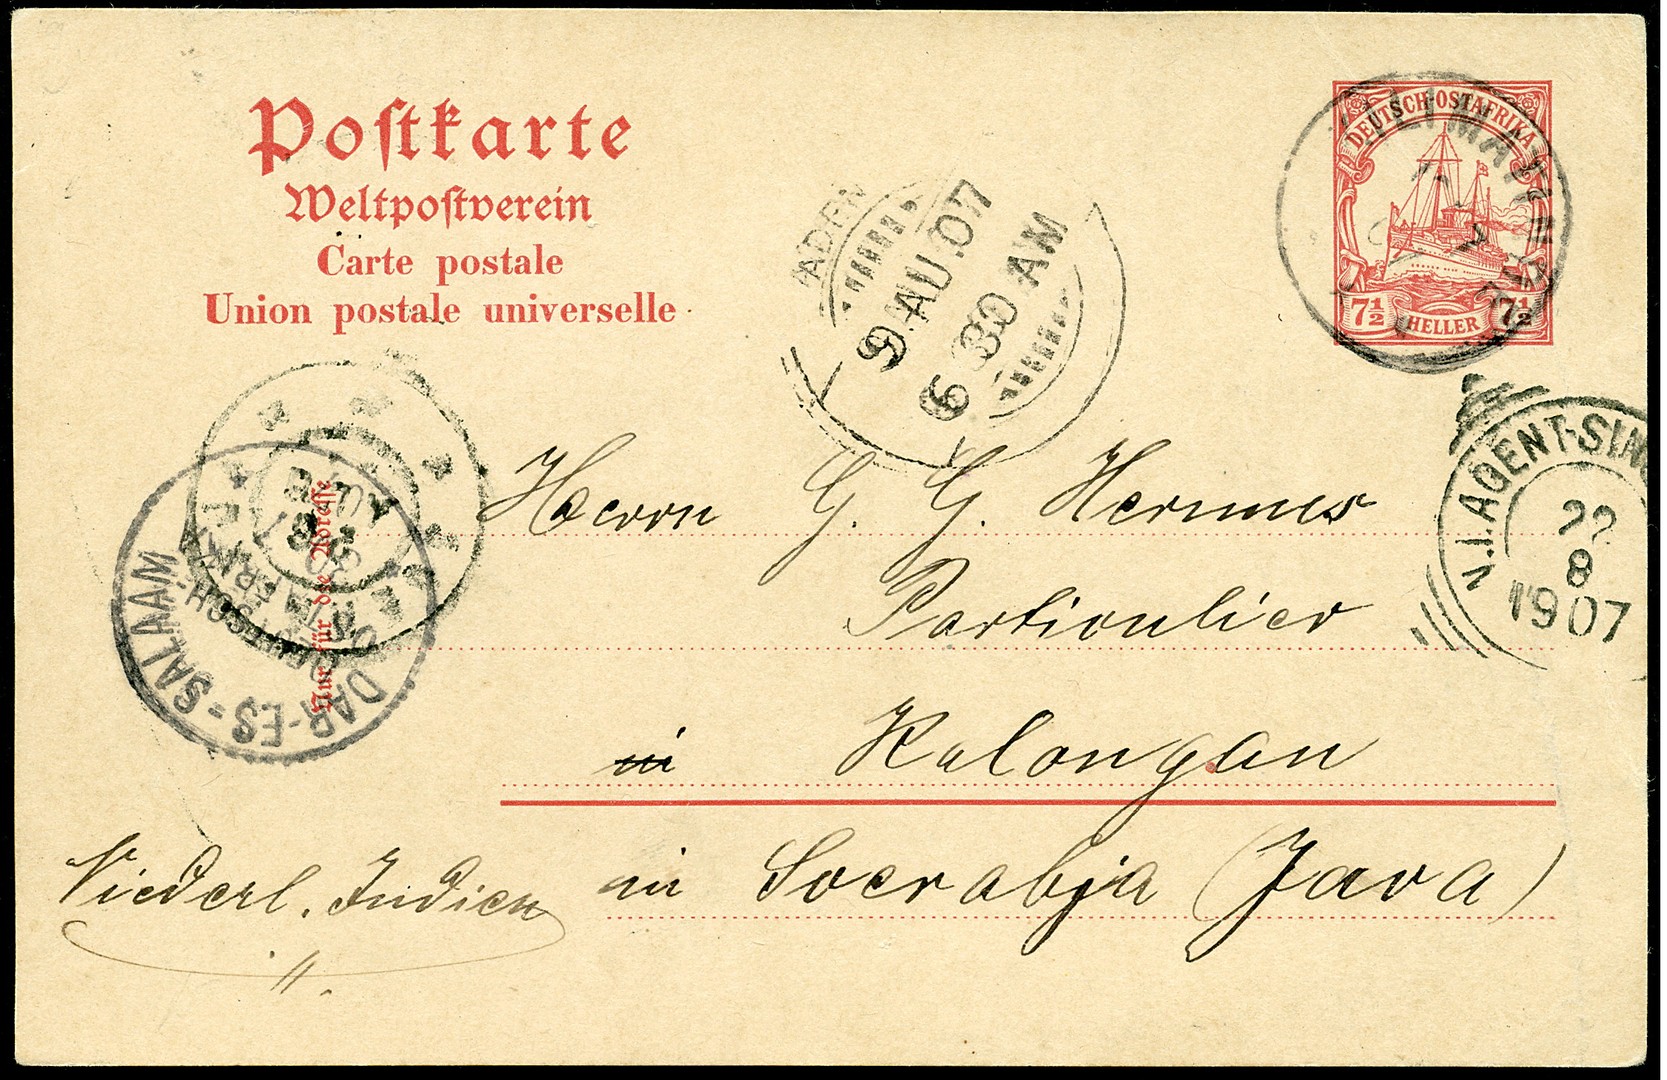 Postkarte
Weltpostverein
Carte postale
Union postale universelle
DEUTSCH-OSTAFRIKA
7½ HELLER 7½
ADEN
9 AU.07
6 30 AM
N.I. AGENT-SING
22
8
1907
DAR-ES-SALAAM
DEUTSCH
Nur für die Adresse
Herrn G. G. Hermes
Particulier
in Kalongan
in Soerabja (Java)
Niederl. Indien